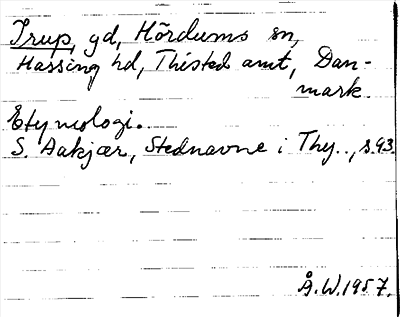 Irup, gd, Hördums sn,
Hassing hd, Thisted amt, Dan-
mark.
Etymologi.
S. Aakjær, Stednavne i Thy.., s. 93.
Å.W. 1957.